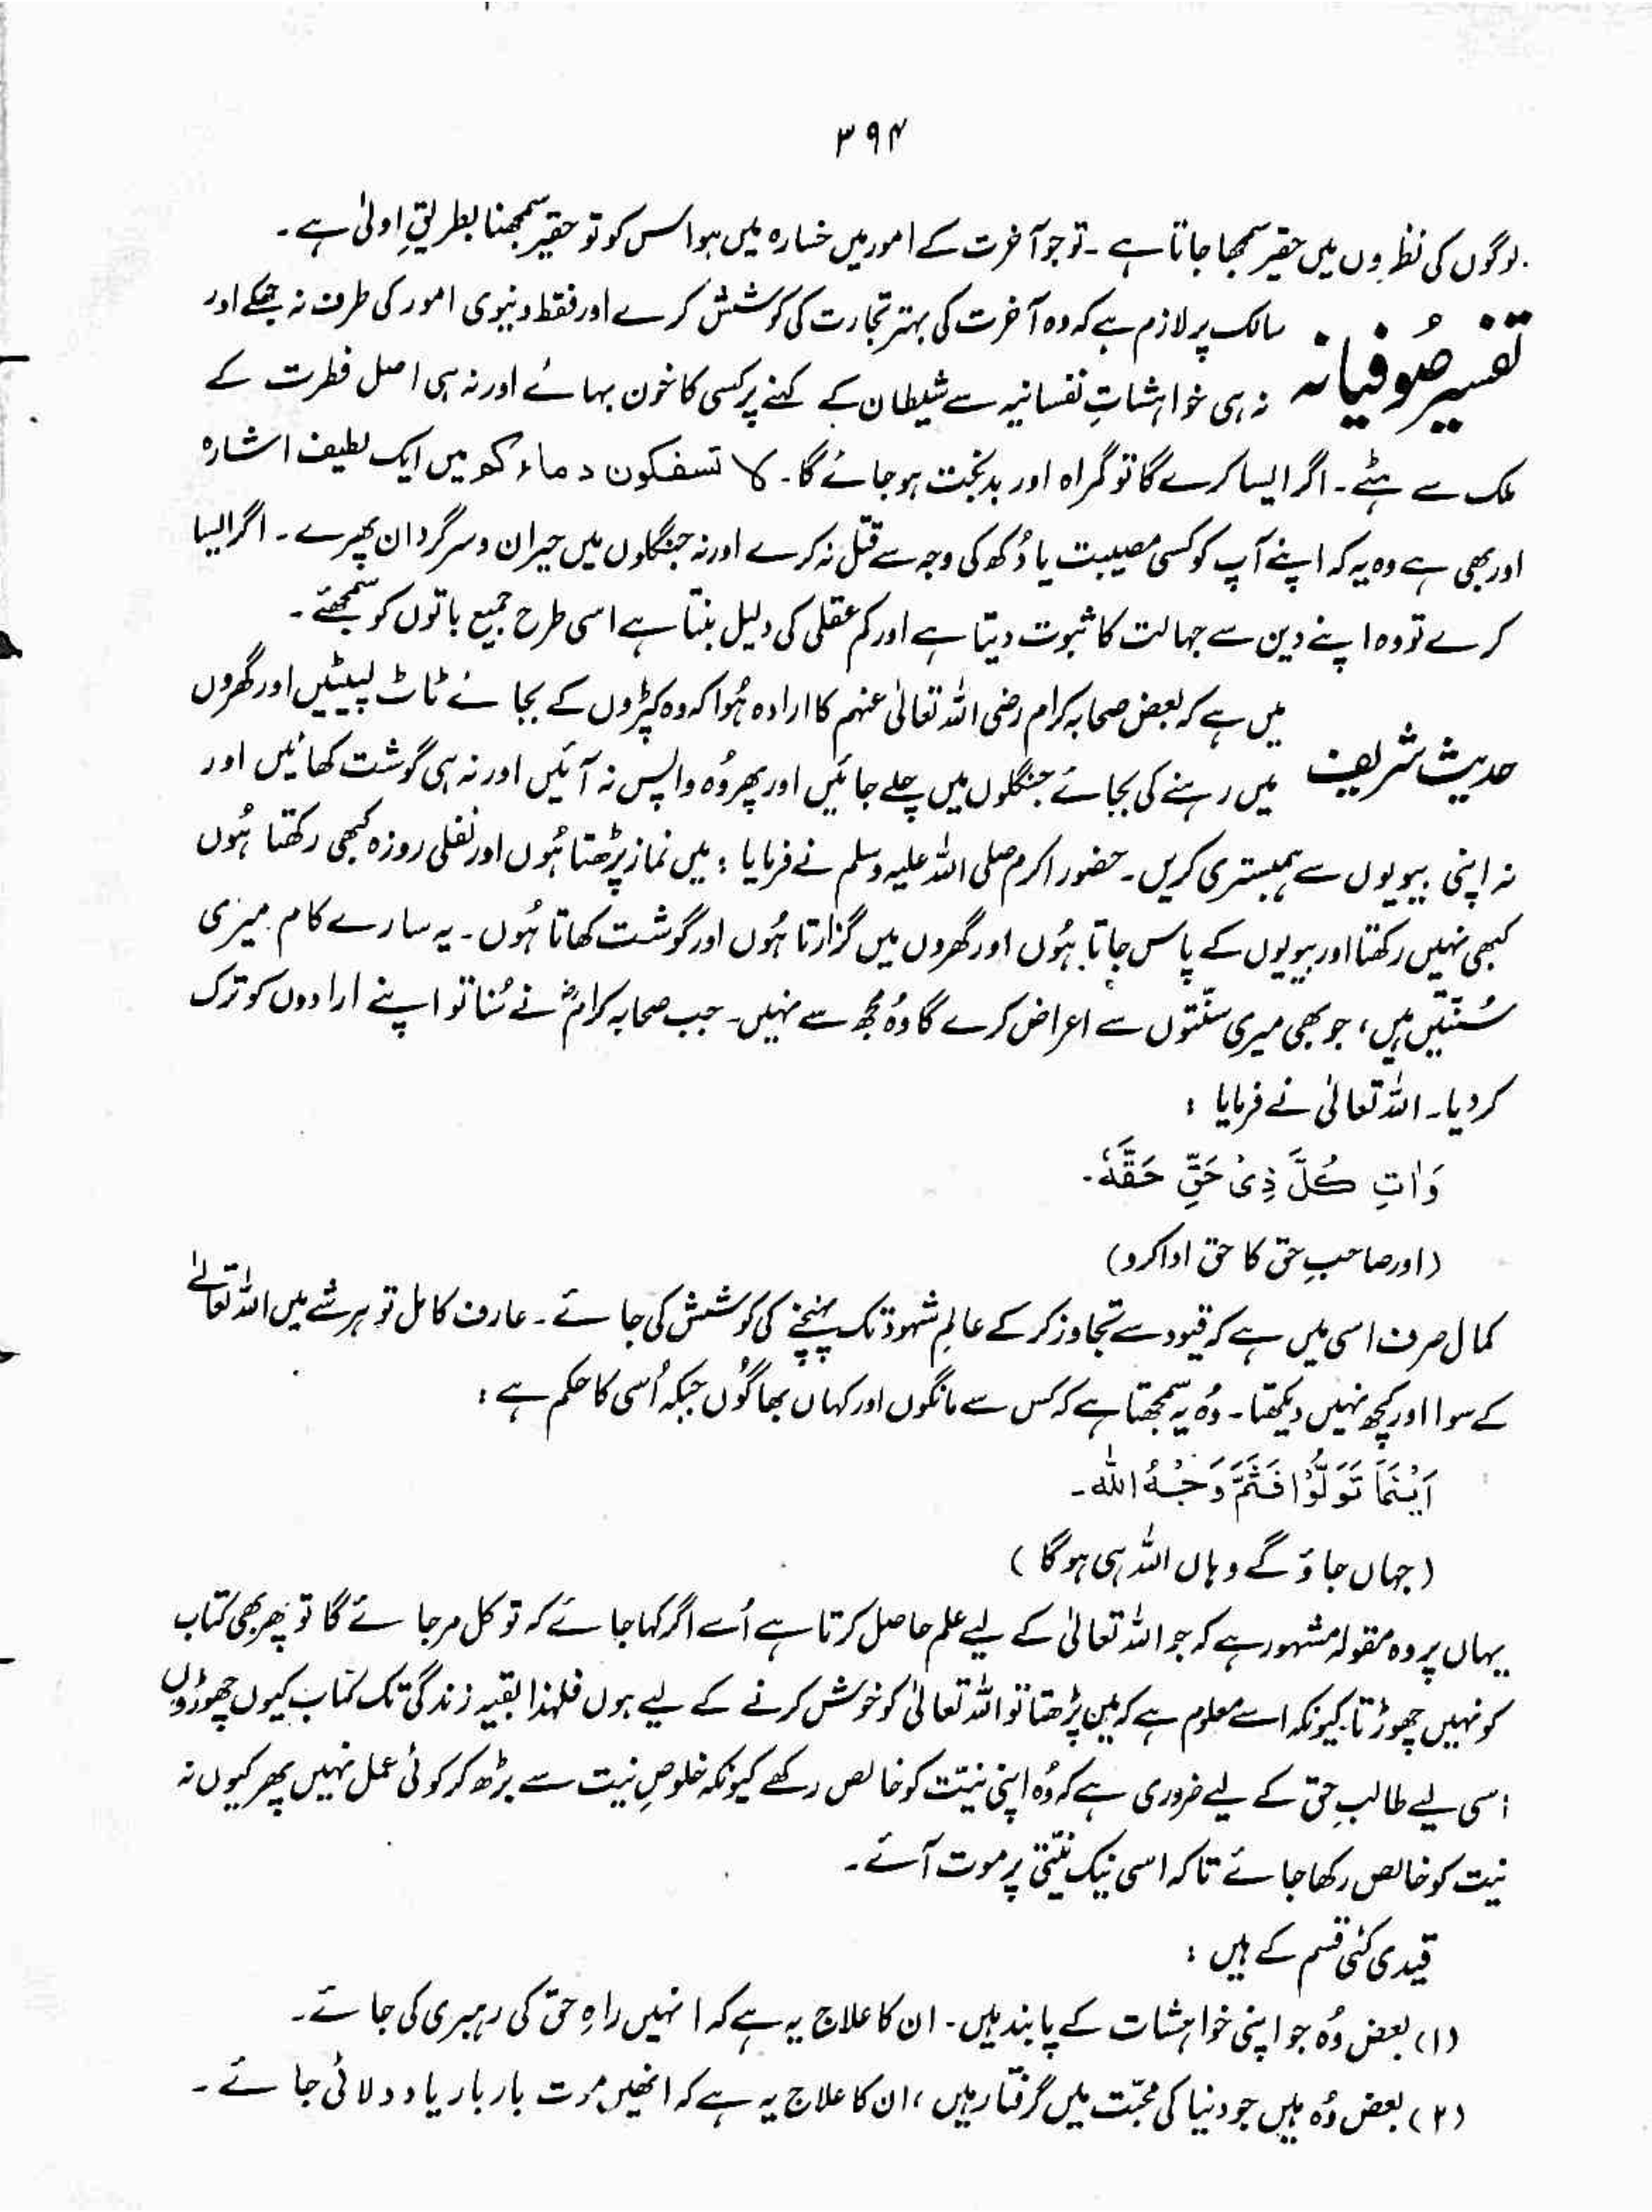 ۳۹۴
لوگوں کی نظروں میں حقیر سمجھا جاتا ہے ۔ تو جو آخرت کے امور میں خسارہ میں ہو اس کو تو حقیر سمجھنا بطریقِ اولیٰ ہے ۔
تفسیر صُوفیانہ سالک پر لازم ہے کہ وہ آخرت کی بہتر تجارت کی کوشش کرے اور فقط دنیوی امور کی طرف نہ جھکے اور
نہ ہی خواہشاتِ نفسانیہ سے شیطان کے کہنے پر کسی کا خون بہائے اور نہ ہی اصل فطرت کے
ملک سے ہٹے ۔ اگر ایسا کرے گا تو گمراہ اور بدبخت ہو جائے گا ۔ لا تسفکون دماءکم میں ایک لطیف اشارہ
اور بھی ہے وہ یہ کہ اپنے آپ کو کسی مصیبت یا دُکھ کی وجہ سے قتل نہ کرے اور نہ جنگلوں میں حیران و سرگردان پھرے ۔ اگر ایسا
کرے تو وہ اپنے دین سے جہالت کا ثبوت دیتا ہے اور کم عقلی کی دلیل بنتا ہے اسی طرح جمیع باتوں کو سمجھئے ۔
حدیث شریف میں ہے کہ بعض صحابہ کرام رضی اللہ تعالیٰ عنہم کا ارادہ ہُوا کہ وہ کپڑوں کے بجائے ٹاٹ لپیٹیں اور گھروں
میں رہنے کی بجائے جنگلوں میں چلے جائیں اور پھر وُہ واپس نہ آئیں اور نہ ہی گوشت کھائیں اور
نہ اپنی بیویوں سے ہمبستری کریں ۔ حضور اکرم صلی اللہ علیہ وسلم نے فرمایا : میں نماز پڑھتا ہُوں اور نفلی روزہ کبھی رکھتا ہُوں
کبھی نہیں رکھتا اور بیویوں کے پاس جاتا ہُوں اور گھروں میں گزارتا ہُوں اور گوشت کھاتا ہُوں ۔ یہ سارے کام میری
سُنتیں ہیں ، جو بھی میری سنّتوں سے اعراض کرے گا وُہ مجھ سے نہیں ۔ جب صحابہ کرامؓ نے سُنا تو اپنے ارادوں کو ترک
کر دیا ۔ اللہ تعالیٰ نے فرمایا :
وَاٰتِ کُلَّ ذِیْ حَقٍّ حَقَّہٗ ۔
( اور صاحبِ حق کا حق ادا کرو )
کمال صرف اسی میں ہے کہ قیود سے تجاوز کر کے عالمِ شہود تک پہنچنے کی کوشش کی جائے ۔ عارف کامل تو ہر شے میں اللہ تعالےٰ
کے سوا اور کچھ نہیں دیکھتا ۔ وُہ یہ سمجھتا ہے کہ کس سے مانگوں اور کہاں بھاگُوں جبکہ اُسی کا حکم ہے :
اَیْنَمَا تَوَلَّوْا فَثَمَّ وَجْہُ اللہ ۔
( جہاں جاؤ گے وہاں اللہ ہی ہوگا )
یہاں پر وہ مقولہ مشہور ہے کہ جو اللہ تعالیٰ کے لیے علم حاصل کرتا ہے اُسے اگر کہا جائے کہ تو کل مر جائے گا تو پھر بھی کتاب
کو نہیں چھوڑتا کیونکہ اسے معلوم ہے کہ میں پڑھتا تو اللہ تعالیٰ کو خوش کرنے کے لیے ہوں فلہٰذا بقیہ زندگی تک کتاب کیوں چھوڑوں
اسی لیے طالبِ حق کے لیے ضروری ہے کہ وُہ اپنی نیّت کو خالص رکھے کیونکہ خلوصِ نیت سے بڑھ کر کوئی عمل نہیں پھر کیوں نہ
نیت کو خالص رکھا جائے تاکہ اسی نیک نیّتی پر موت آئے ۔
قیدی کئی قسم کے ہیں :
(۱) بعض وُہ جو اپنی خواہشات کے پابند ہیں ۔ ان کا علاج یہ ہے کہ انہیں راہِ حق کی رہبری کی جائے ۔
(۲) بعض وُہ ہیں جو دنیا کی محبّت میں گرفتار ہیں ، ان کا علاج یہ ہے کہ انھیں موت بار بار یاد دلائی جائے ۔